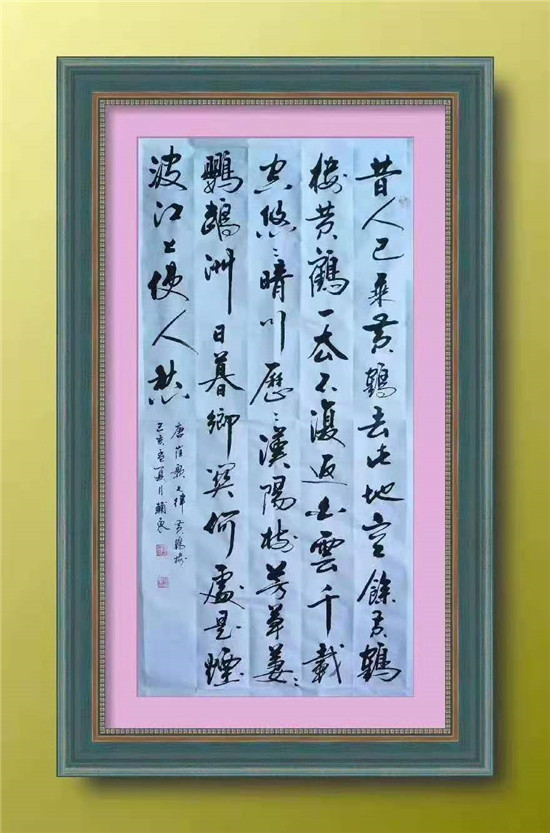 昔人已乘黄鶴去此地空餘黄鶴
樓黄鶴一去不復返白雲千載
空悠々晴川歷々漢陽樹芳草萋々
鸚鵡洲日暮鄉關何處是煙
波江上使人愁
唐崔顥七律黄鶴樓
己亥夏月